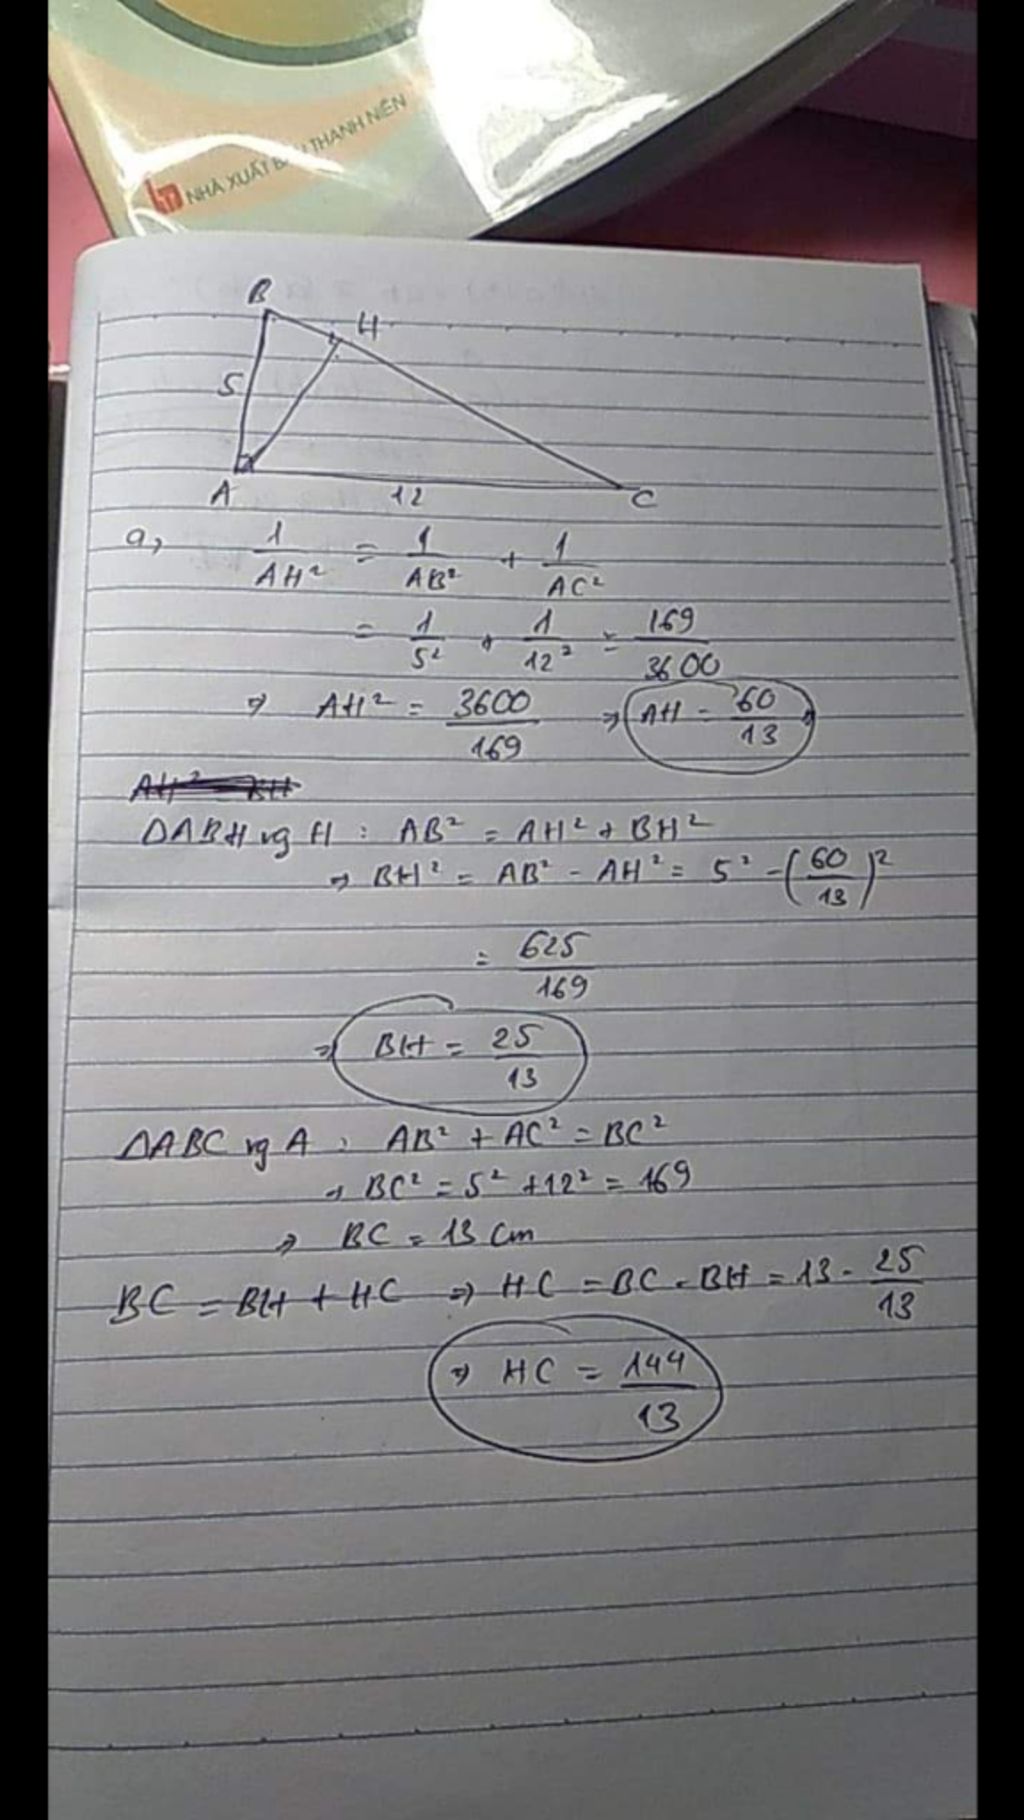 NHÀ XUẤT BẢN THANH NIÊN
B
H
5
A
12
C
a, 1/AH² = 1/AB² + 1/AC²
= 1/5² + 1/12² = 169/3600
⇒ AH² = 3600/169 ⇒ AH = 60/13
ΔABH vg H : AB² = AH² + BH²
⇒ BH² = AB² - AH² = 5² - (60/13)²
= 625/169
⇒ BH = 25/13
ΔABC vg A : AB² + AC² = BC²
⇒ BC² = 5² + 12² = 169
⇒ BC = 13 cm
BC = BH + HC ⇒ HC = BC - BH = 13 - 25/13
⇒ HC = 144/13